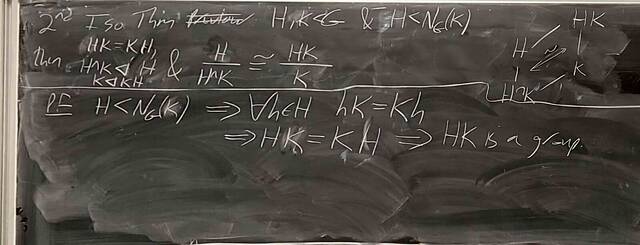 2nd Iso Thm H,K<G & H<N_G(K)
then HK=KH,
H∩K◁H & H/H∩K ≅ HK/K
K◁KH
HK
H K
H∩K
Pf H<N_G(K) ⇒ ∀h∈H hK=Kh
⇒HK=KH ⇒ HK is a group.